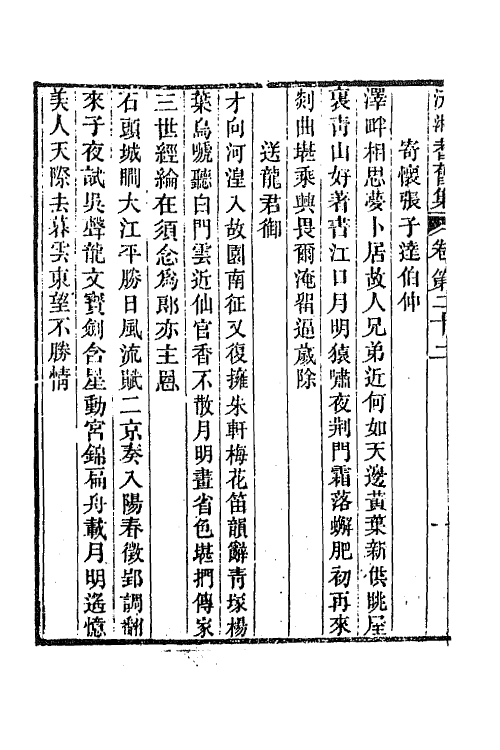 沅湘耆舊集 卷第二十二
寄懷張子達伯仲
澤畔相思夢卜居故人兄弟近何如天邊黃葉新供眺屋
裏靑山好著書江口月明猿嘯夜荆門霜落蠏肥初再來
剡曲堪乘興畏爾淹留逼歲除
送龍君御
才向河湟入故園南征又復擁朱軒梅花笛韻辭靑塚楊
葉烏號聽白門雲近仙官香不散月明畫省色堪捫傳家
三世經綸在須念爲郞亦主恩
石頭城闊大江平勝日風流賦二京奏入陽春徵郢調翻
來子夜試吳聲龍文寶劍含星動宮錦扁舟載月明遙憶
美人天際去暮雲東望不勝情